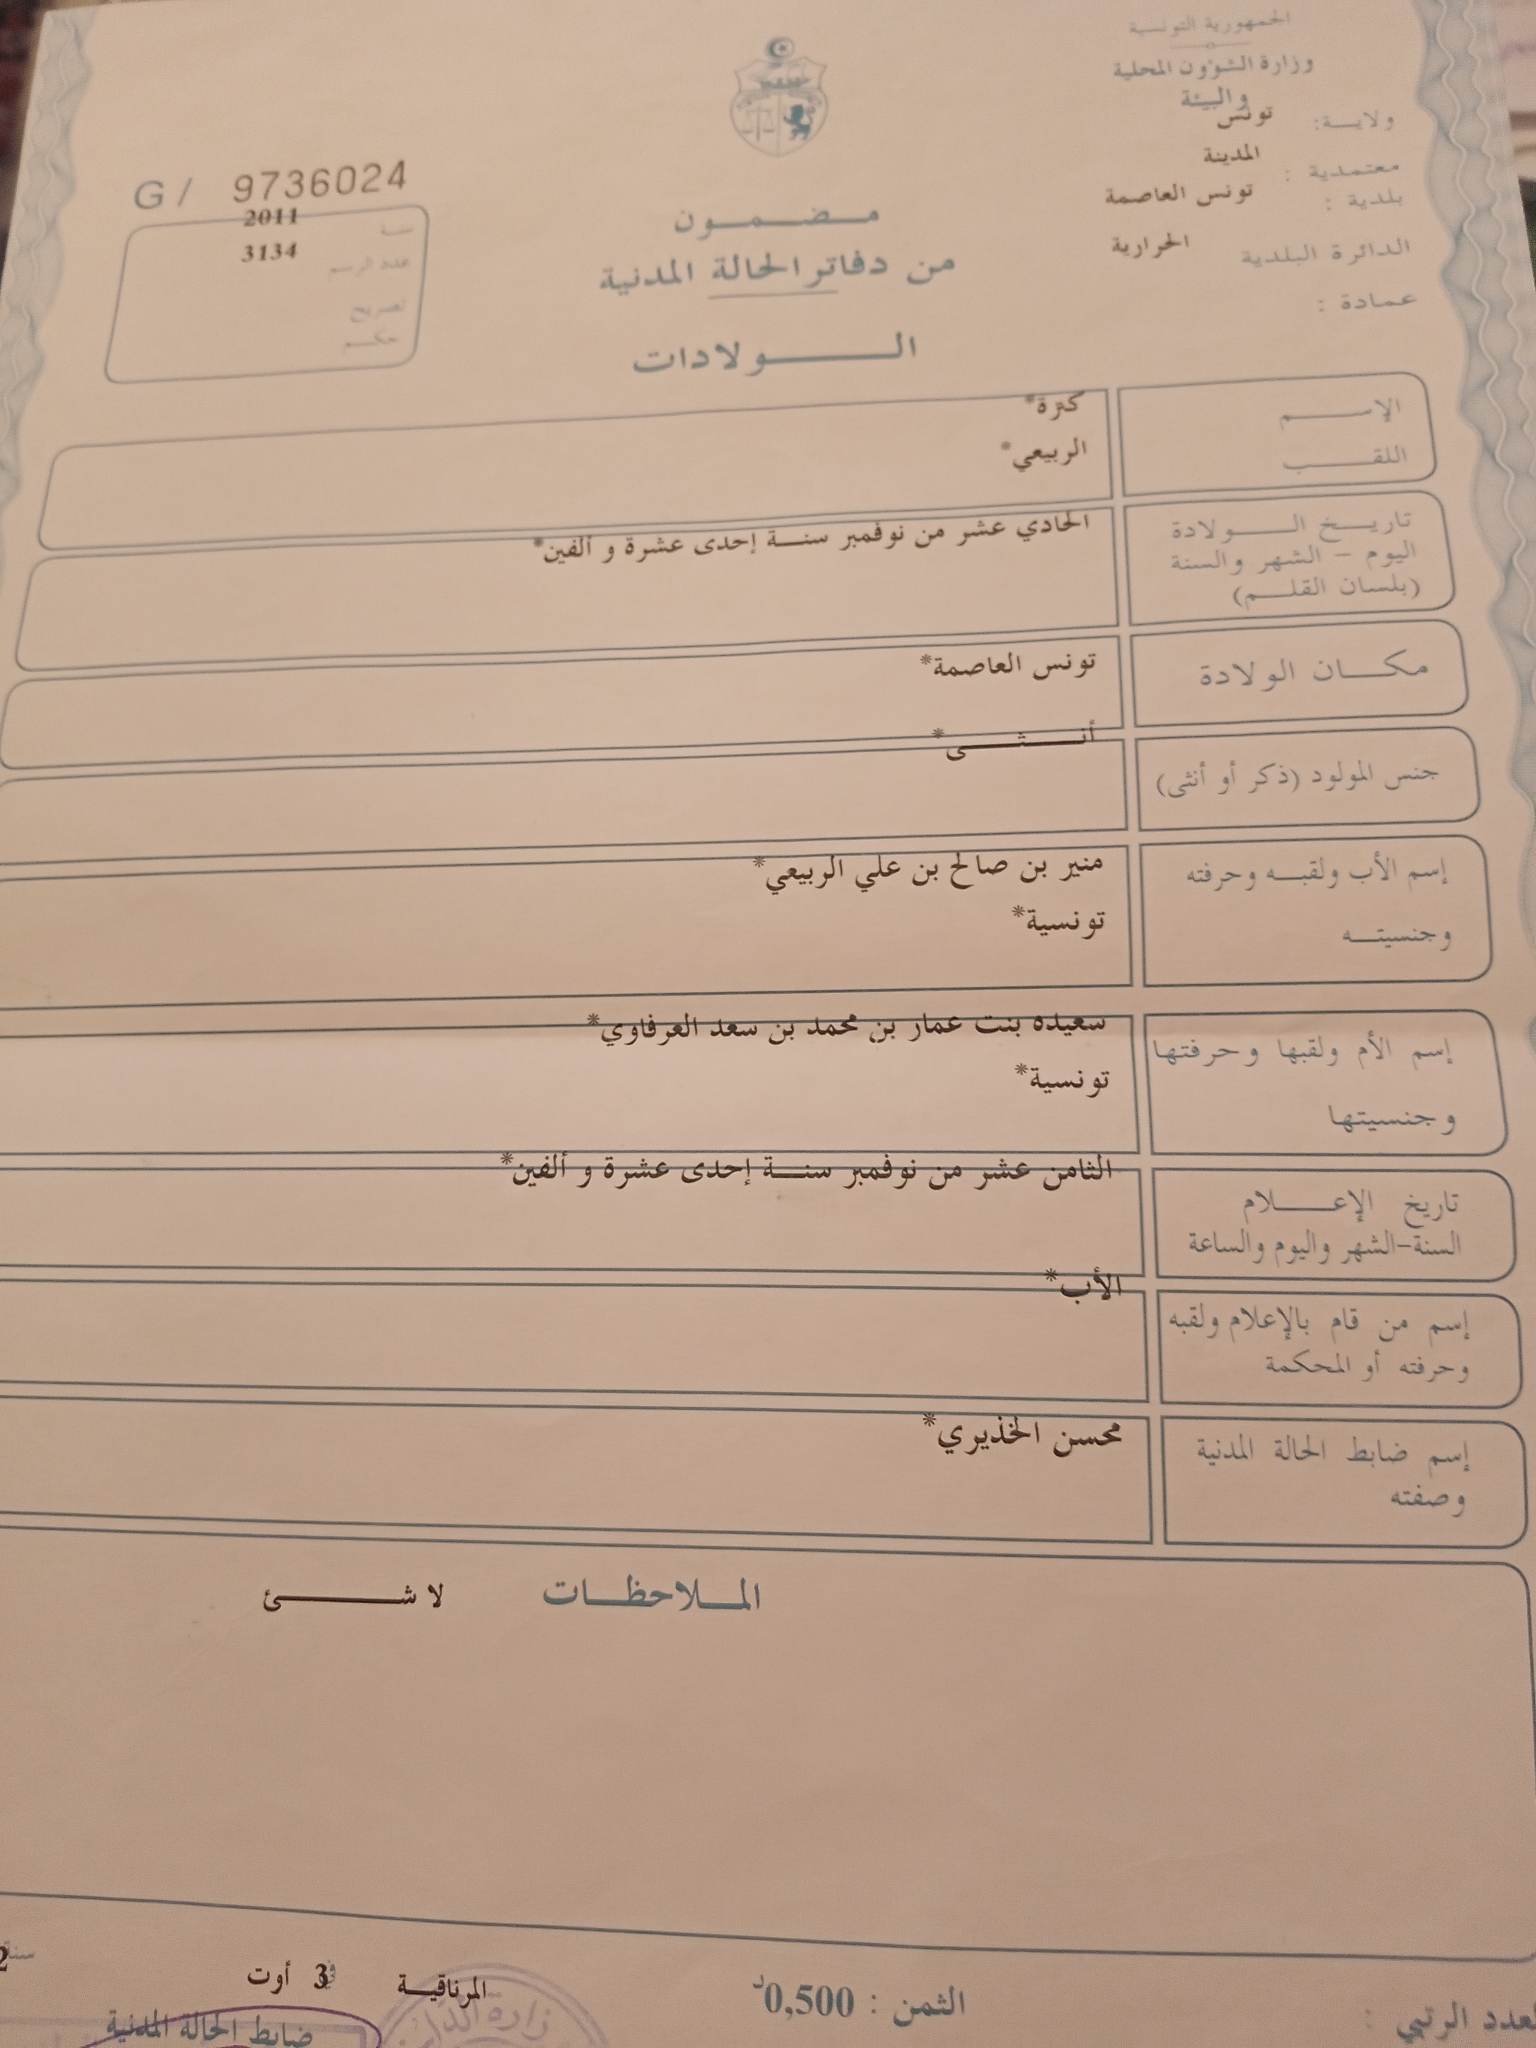 الجمهورية التونسية
وزارة الشؤون المحلية
والبيئة
ولايـــة: تونس
معتمدية : المدينة
بلدية : تونس العاصمة
الدائرة البلدية الحرارية
عمادة :
G / 9736024
سنة 2011
عدد الرسم 3134
تصريح
حكم
مـضـمـــون
من دفاتر الحالة المدنية
الـــــولادات
الإســـــم كنزة*
اللقـــــب الربيعي*
تاريـــخ الـــــولادة الحادي عشر من نوفمبر سنـــة إحدى عشرة و ألفين*
اليوم - الشهر والسنة
(بلسان القلـــم)
مكـــان الولادة تونس العاصمة*
جنس المولود (ذكر أو أنثى) أنـــثـــى*
إسم الأب ولقبـــه وحرفته منير بن صالح بن علي الربيعي*
وجنسيتـــه تونسية*
إسم الأم ولقبها وحرفتها سعيده بنت عمار بن محمد بن سعد العرفاوي*
وجنسيتها تونسية*
تاريخ الإعـــلام الثامن عشر من نوفمبر سنـــة إحدى عشرة و ألفين*
السنة-الشهر واليوم والساعة
إسم من قام بالإعلام ولقبه الأب*
وحرفته أو المحكمة
إسم ضابط الحالة المدنية محسن الخذيري*
وصفته
المـــلاحظـــات لا شـــــئ
المرناقيـــة في 3 أوت سنة 2
الثمن : 0,500د
العدد الرتبي :
ضابط الحالة المدنية